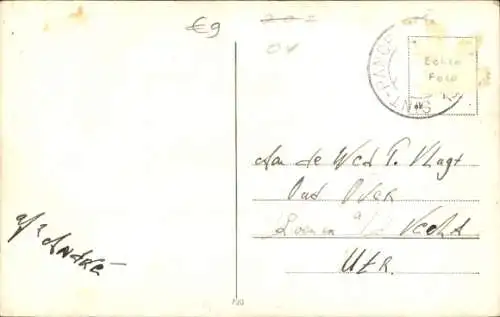 €9
OV
SINT-PANCR
Echte
Foto
Aan de Wed T. Vlugt
Oud Over
Loenen a/d Vecht
Utr.
André